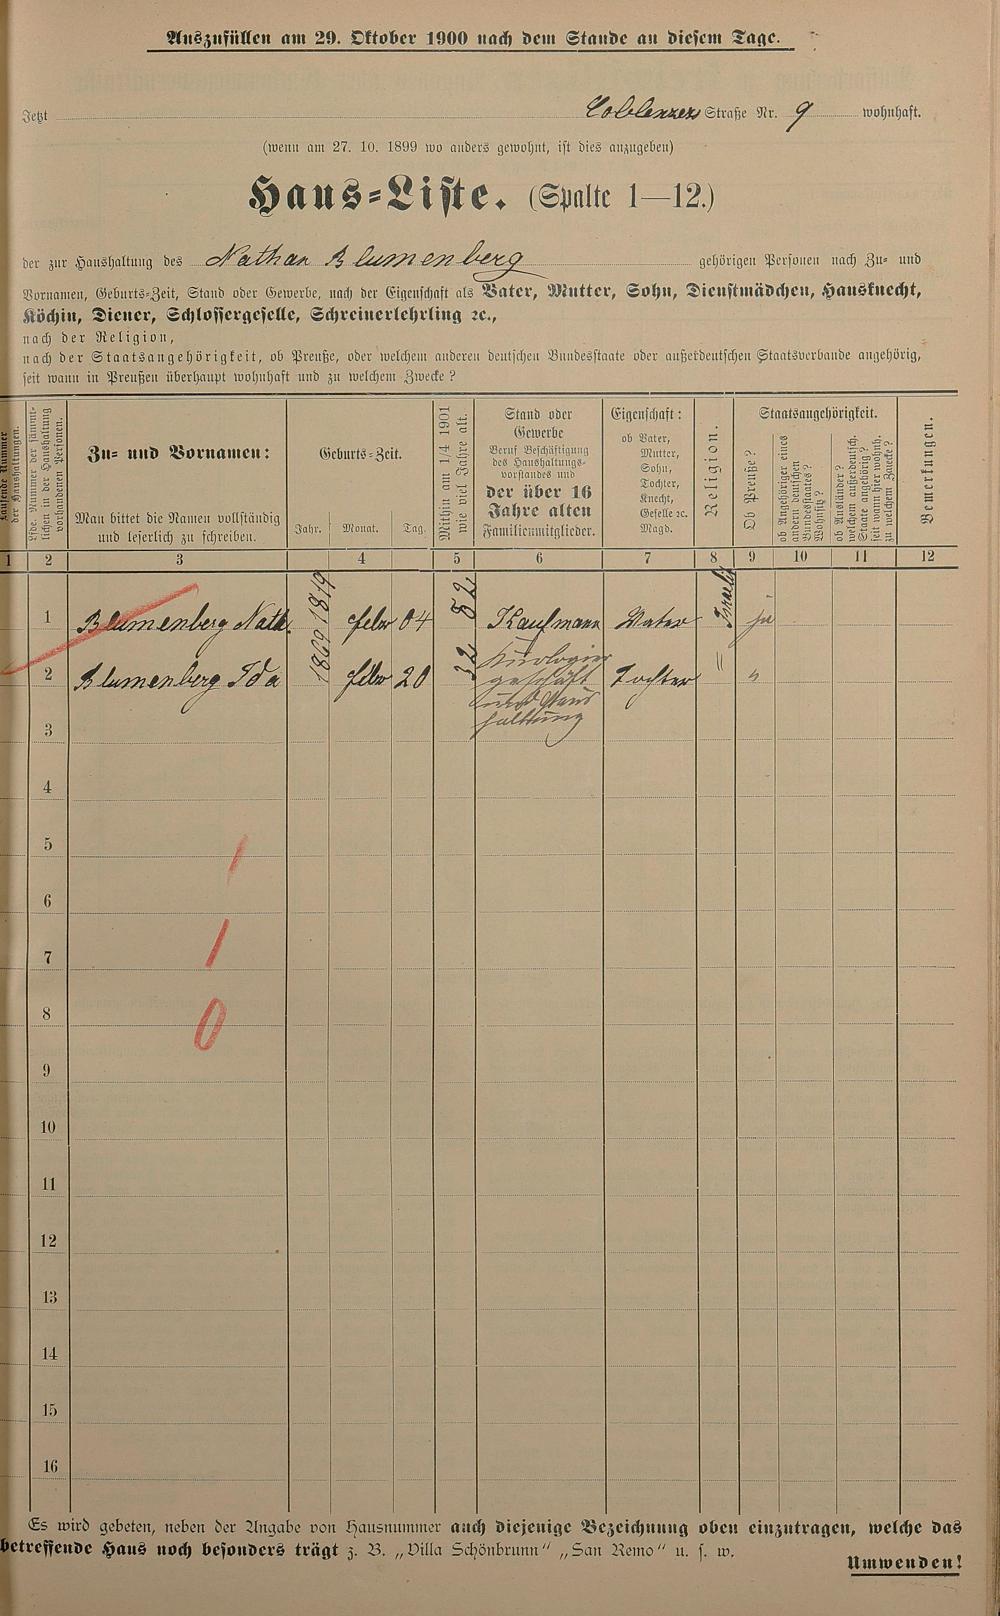 Auszufüllen am 29. Oktober 1900 nach dem Stande an diesem Tage.
Jetzt Coblenzer Straße Nr. 9 wohnhaft.
(wenn am 27. 10. 1899 wo anders gewohnt, ist dies anzugeben)
Haus=Liste. (Spalte 1—12.)
der zur Haushaltung des Nathan Blumenberg gehörigen Personen nach Zu= und
Vornamen, Geburts=Zeit, Stand oder Gewerbe, nach der Eigenschaft als Vater, Mutter, Sohn, Dienstmädchen, Hausknecht,
Köchin, Diener, Schlossergeselle, Schreinerlehrling ꝛc.,
nach der Religion,
nach der Staatsangehörigkeit, ob Preuße, oder welchem anderen deutschen Bundesstaate oder außerdeutschen Staatsverbande angehörig,
seit wann in Preußen überhaupt wohnhaft und zu welchem Zwecke?
Laufende Nummer
der Haushaltungen.
Lfde. Nummer der sämmt-
lichen in der Haushaltung
vorhandenen Personen.
Zu= und Vornamen:
Man bittet die Namen vollständig
und leserlich zu schreiben.
Geburts=Zeit.
Jahr. Monat. Tag.
Mithin am 1/4 1901
wie viel Jahre alt.
Stand oder
Gewerbe
Beruf Beschäftigung
des Haushaltungs-
vorstandes und
der über 16
Jahre alten
Familienmitglieder.
Eigenschaft:
ob Vater,
Mutter,
Sohn,
Tochter,
Knecht,
Geselle ꝛc.
Magd.
Religion.
Staatsangehörigkeit.
Ob Preuße?
ob Angehöriger eines
andern deutschen
Bundesstaates?
Wohnsitz?
ob Ausländer?
welchem außerdeutsch.
Staate angehörig?
seit wann hier wohnh.
zu welchem Zwecke?
Bemerkungen.
1 2 3 4 5 6 7 8 9 10 11 12
1 Blumenberg Nath. 1819 febr 04 82 Kaufmann Vater Israelit ja
2 Blumenberg Ida 1869 febr 20 32 geschäft und Haus haltung Tochter " "
3
4
5
6
7
8
9
10
11
12
13
14
15
16
1
1
0
Es wird gebeten, neben der Angabe von Hausnummer auch diejenige Bezeichnung oben einzutragen, welche das
betreffende Haus noch besonders trägt z. B. „Villa Schönbrunn" „San Remo" u. s. w.
Umwenden!